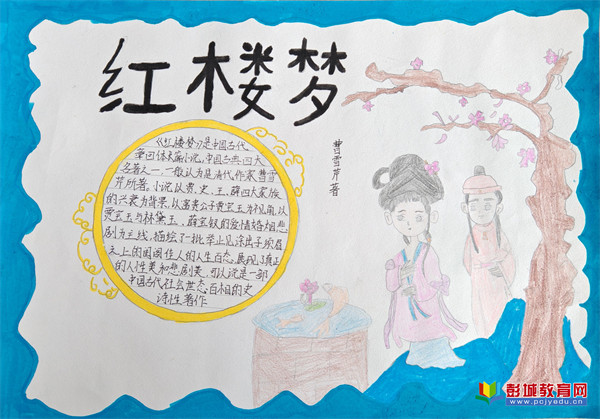 红楼梦
曹雪芹著
《红楼梦》是中国古代
章回体长篇小说,中国古典四大
名著之一,一般认为是清代作家曹雪
芹所著。小说以贾、史、王、薛四大家族
的兴衰为背景,以富贵公子贾宝玉为视角,以
贾宝玉与林黛玉、薛宝钗的爱情婚姻悲
剧为主线,描绘了一批举止见识出于须眉
之上的闺阁佳人的人生百态,展现了真正
的人性美和悲剧美,可以说是一部
中国古代社会世态百相的史
诗性著作
彭城教育网
www.pcjyedu.cn